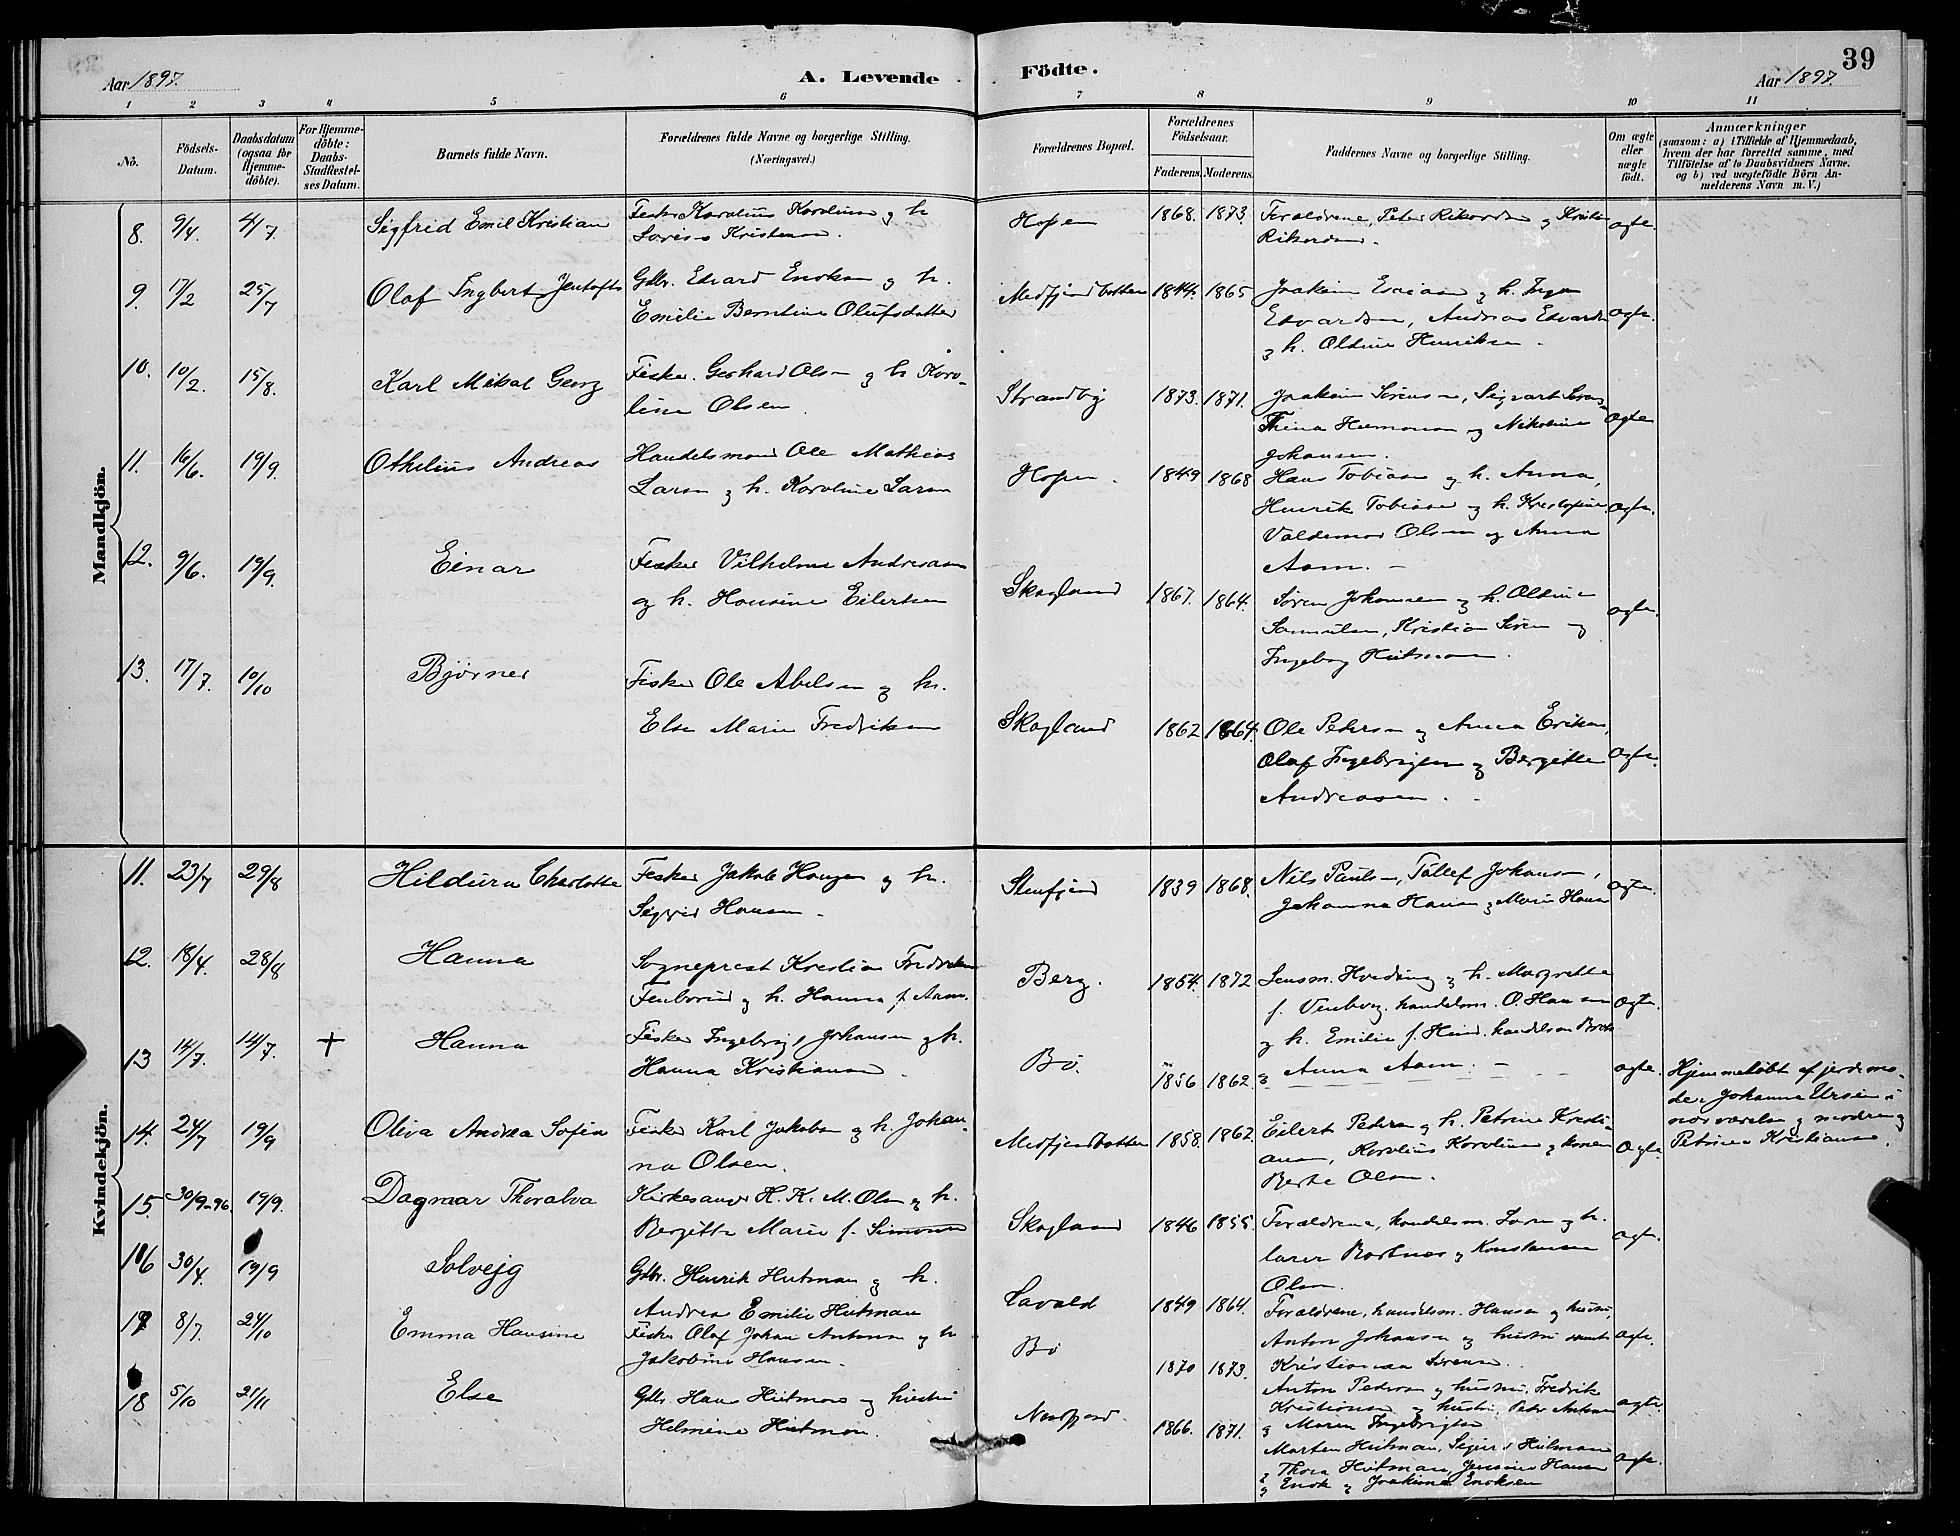 39
Aar 1897.
A. Levende
Födte.
Aar 1897.
1 2 3 4 5 6 7 8 9 10 11
No.
Födsels-
Datum.
Daabsdatum
(ogsaa for
Hjemme-
döbte).
For Hjemme-
döbte:
Daabs-
Stadfæstel-
ses Datum.
Barnets fulde Navn.
Forældrenes fulde Navne og borgerlige Stilling.
(Næringsvei.)
Forældrenes Bopæl.
Forældrenes
Födselsaar.
Faderens.
Moderens.
Faddernes Navne og borgerlige Stilling.
Om ægte
eller
uægte
födt.
Anmærkninger
(saasom: a) i Tilfælde af Hjemmedaab,
hvem der har forrettet samme, med
Tilföielse af to Daabsvidners Navne,
og b) ved uægtefödte Börn An-
melderens Navn m. V.)
Mandkjön.
8. 9/4. 4/7. Sigfrid Emil Kristian
Fisker Karolius Karoliusen og h
Kristensen.
Hopen 1868. 1873.
Forældrene, Peter Rikardsen og
Rikardsen.
ægte.
9. 17/2 25/7 Olaf Ingbert Jentoft
Gdbr. Edvard Enoksen og h.
Emilie Berntine Olufsdatter
Medfjordbotten 1844. 1865
Joakim Esaiasen og h. Inga
Edvardsen, Andreas Edvardsen
og h. Oldine Henriksen.
ægte.
10. 10/2. 15/8. Karl Mikal Georg
Fisker Gerhard Olsen og h Karo-
line Olsen.
Strandby 1873. 1871.
Joakim Sörensen, Sigvart Sörensen
Trina Hermansen og Nikoline
Johansen.
ægte
11. 16/6. 19/9. Othelius Andreas
Handelsmand Ole Mathias
Larsen og h. Karoline Larsen
Hopen. 1849 1868
Hans Tobiasen og h. Anna,
Henrik Tobiasen og h. Kristofine
Valdemar Olsen og Anna
Aam.
ægte.
12. 9/6. 19/9. Einar
Fisker Vilhelm Andreasen
og h. Hansine Eilertsen
Skagland 1867. 1864.
Sören Johansen og h. Oldine
Samuelsen, Kristian Sörensen og
Ingeborg Hutmann.
ægte.
13. 17/7. 10/10 Bjørner
Fisker Ole Abelsen og h.
Else Marie Fredriksen
Skagland 1862 1864.
Ole Pedersen og Anna Eriksen,
Olaf Ingebrigtsen og Bergitte
Andreasen.
ægte.
Kvindekjön.
11. 23/7 29/8 Hildura Charlotte
Fisker Jakob Hansen og h.
Sigrid Hansen.
Stenfjord 1839 1868.
Nils Paulsen, Tollef Johansen,
Johanna Hansen og Marie Hansen
ægte.
12. 18/4. 28/8 Hanna
Sogneprest Kristian Fredriksen
og h. Hanna f. Aam.
Berg. 1854. 1872
Lensm. Hveding og h. Margrethe
handelsm. O. Hansen
og h. Emilie
og Anna Aam.
ægte.
13 14/7. 14/7. + Hanna
Fisker Ingebrigt Johansen og h.
Hanna Kristiansen.
Bö. 1856 1862.
ægte.
Hjemmedöbt af jordemo-
der Johanna Ursin i
nærværelse af moderen og
Petrine Kristiansen.
14. 24/7 19/9 Oliva Andrea Sofie
Fisker Karl Jakobsen og h. Johan-
na Olsen.
Medfjordbotten 1858. 1862.
Eilert Pedersen og h. Petrine Kristi-
ansen, Karolius Karoliusen og konen
Berte Olsen.
ægte
15. 30/9-96. 19/9. Dagmar Thoralva
Kirkesanger H. K. M. Olsen og h.
Bergitte Marie f. Simonsen
Skagland 1846 1855.
Forældrene, handelsm. Larsen og h.
lærer og Konstanse
Olsen.
ægte.
16 30/4. 19/9 Solvejg
Gdbr. Henrik Hutman og h.
Andrea Emilie Hutman
Lavold 1849 1864.
Forældrene, handelsm. Hansen og hustru,
Anton Johansen og hustru samt
Kristianna Sörensen.
ægte.
17 8/7. 24/10 Emma Hansine
Fisker Olaf Johan Antonsen og h
Jakobine Hansen.
Bö 1870 1873.
Anton Pedersen og hustru, Fredrik
Kristiansen og hustru, Peter Antonsen
og Maren Ingebrigtsen
ægte.
18 5/10 21/11 Else
Gdbr. Hans Hutman og hustru
Helmine Hutman.
Nordfjord. 1866. 1871.
Morten Hutman, Sigurd Hutman
og Thora Hutman, Jensine Hansen
og Enok og Joakime Enoksen
ægte.